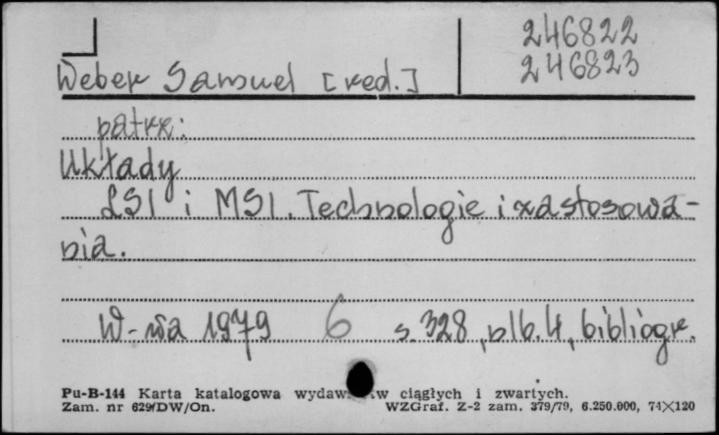 246822
246823
Weber Samuel [red.]
patrz:
Układy
LSI i MSI. Technologie i zastosowa-
nia.
W-wa 1979 6 s. 328, nlb. 4, bibliogr.
Pu-B-144 Karta katalogowa wydaw ciągłych i zwartych.
Zam. nr 629/DW/On. WZGraf. Z-2 zam. 379/79, 6.250.000, 74×120